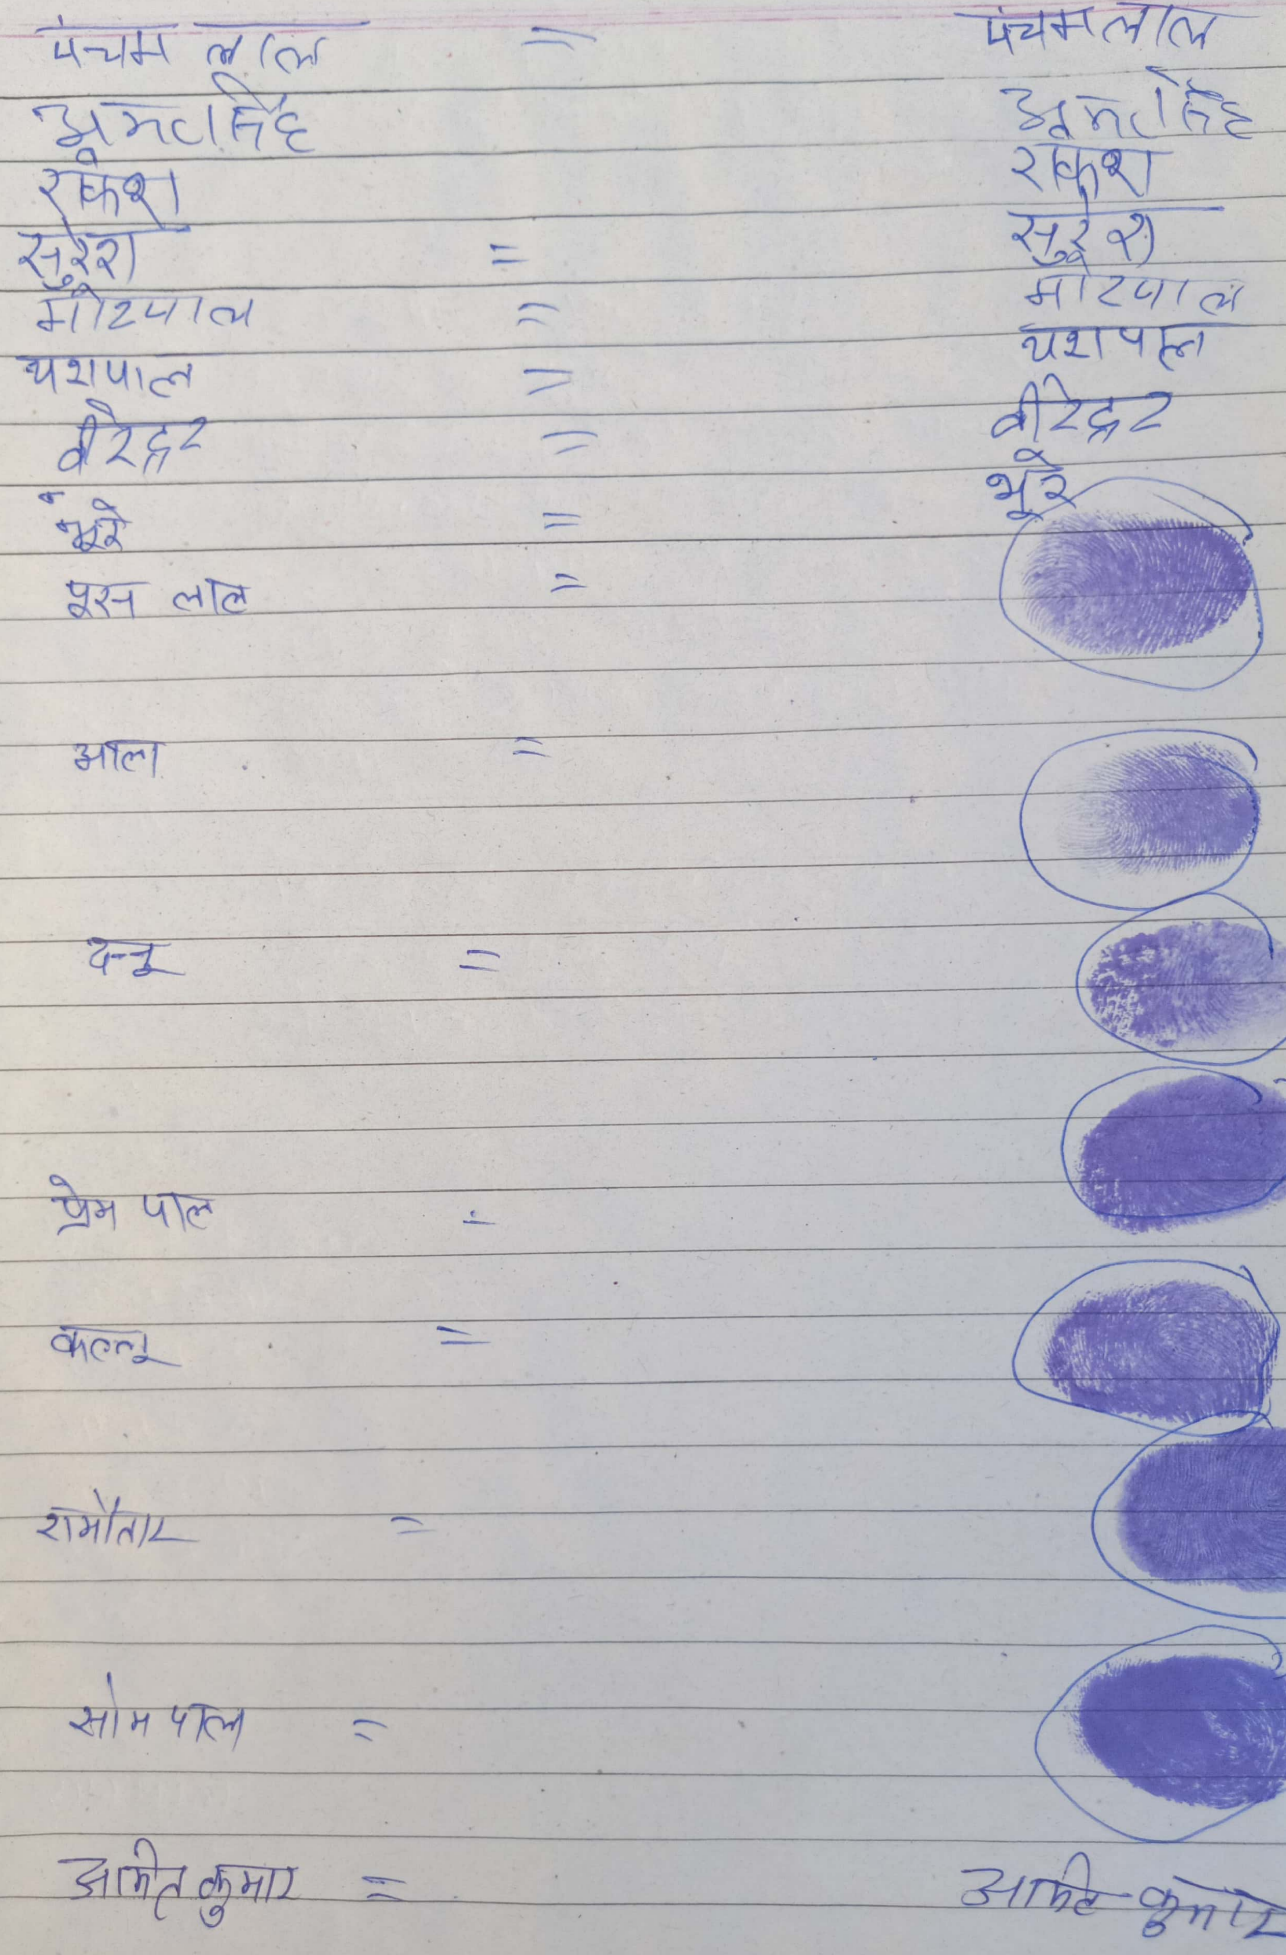 पंचम लाल = पंचम लाल
अमर सिंह अमर सिंह
राकेश राकेश
सुरेश = सुरेश
मोरपाल = मोरपाल
यशपाल = यशपाल
वीरेन्द्र = वीरेन्द्र
भूरे = भूरे
पूरन लाल =
=
दन्नू =
प्रेम पाल =
कल्लू =
रामौतार =
सोम पाल =
अमित कुमार = अमित कुमार